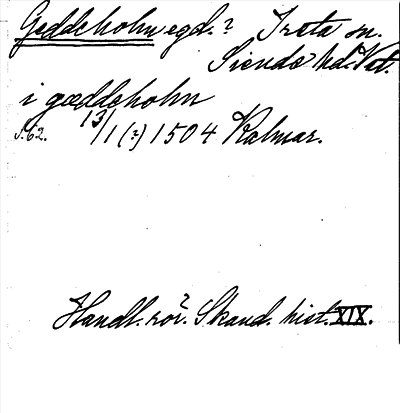 Geddeholm egd.? Irsta sn.
Siende hd. Vstm.
i gæddeholm
s. 62. 13/1 (?) 1504 Kalmar.
Handl. rör. Skand. hist. XIX.